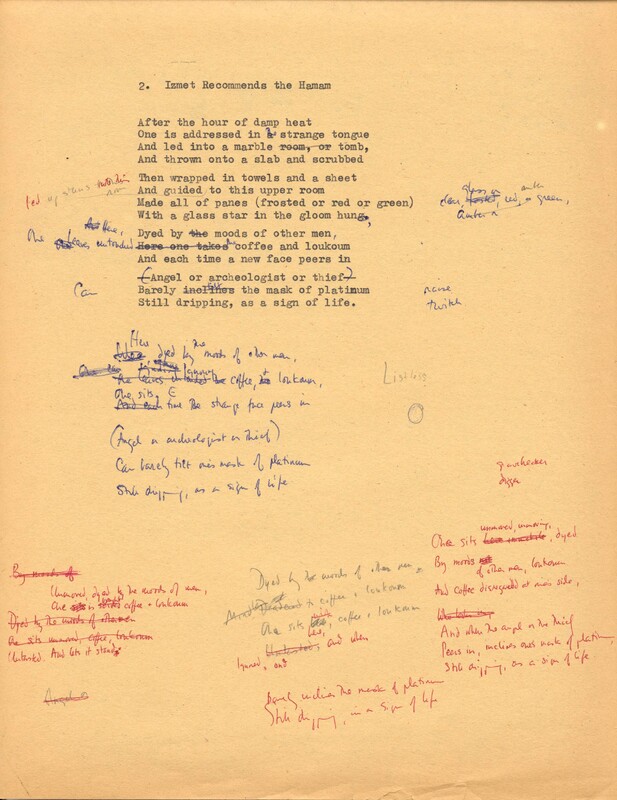 2. Izmet Recommends the Hamam
After the hour of damp heat
One is addressed in a strange tongue
And led into a marble room, or tomb,
And thrown onto a slab and scrubbed
Then wrapped in towels and a sheet
And guided to this upper room
Made all of panes (frosted or red or green)
With a glass star in the gloom hung,
glass or
clear, frosted, red, or green,
amber
Here,
One leaves untouched
Dyed by the moods of other men,
Here one takes the coffee and loukoum
And each time a new face peers in
(Angel or archeologist or thief)
Can
Barely inclines the mask of platinum
Still dripping, as a sign of life.
raise
twitch
Here dyed by the moods of other men,
One leaves coffee, loukoum,
One sits,
And each time the strange face peers in
(Angel or archeologist or thief)
Can barely tilt one's mask of platinum
Still dripping, as a sign of life
Listless
digger
unmoved, unmoving,
One sits dyed
By moods of other men, loukoum
And coffee disregarded at one's side,
And when the angel or the thief
Peers in, inclines one's mask of platinum,
Still dripping, as a sign of life.
By moods of
Unmoved, dyed by the moods of men,
One coffee + loukoum
Dyed by the moods of other men
One sits unmoved, coffee, loukoum
Untasted. And lets it stand,
Angel or
Dyed by the moods of other men,
to coffee + loukoum
One sits coffee + loukoum
and when
Ignored, and
Barely inclines the mask of platinum
Still dripping, in a sign of life